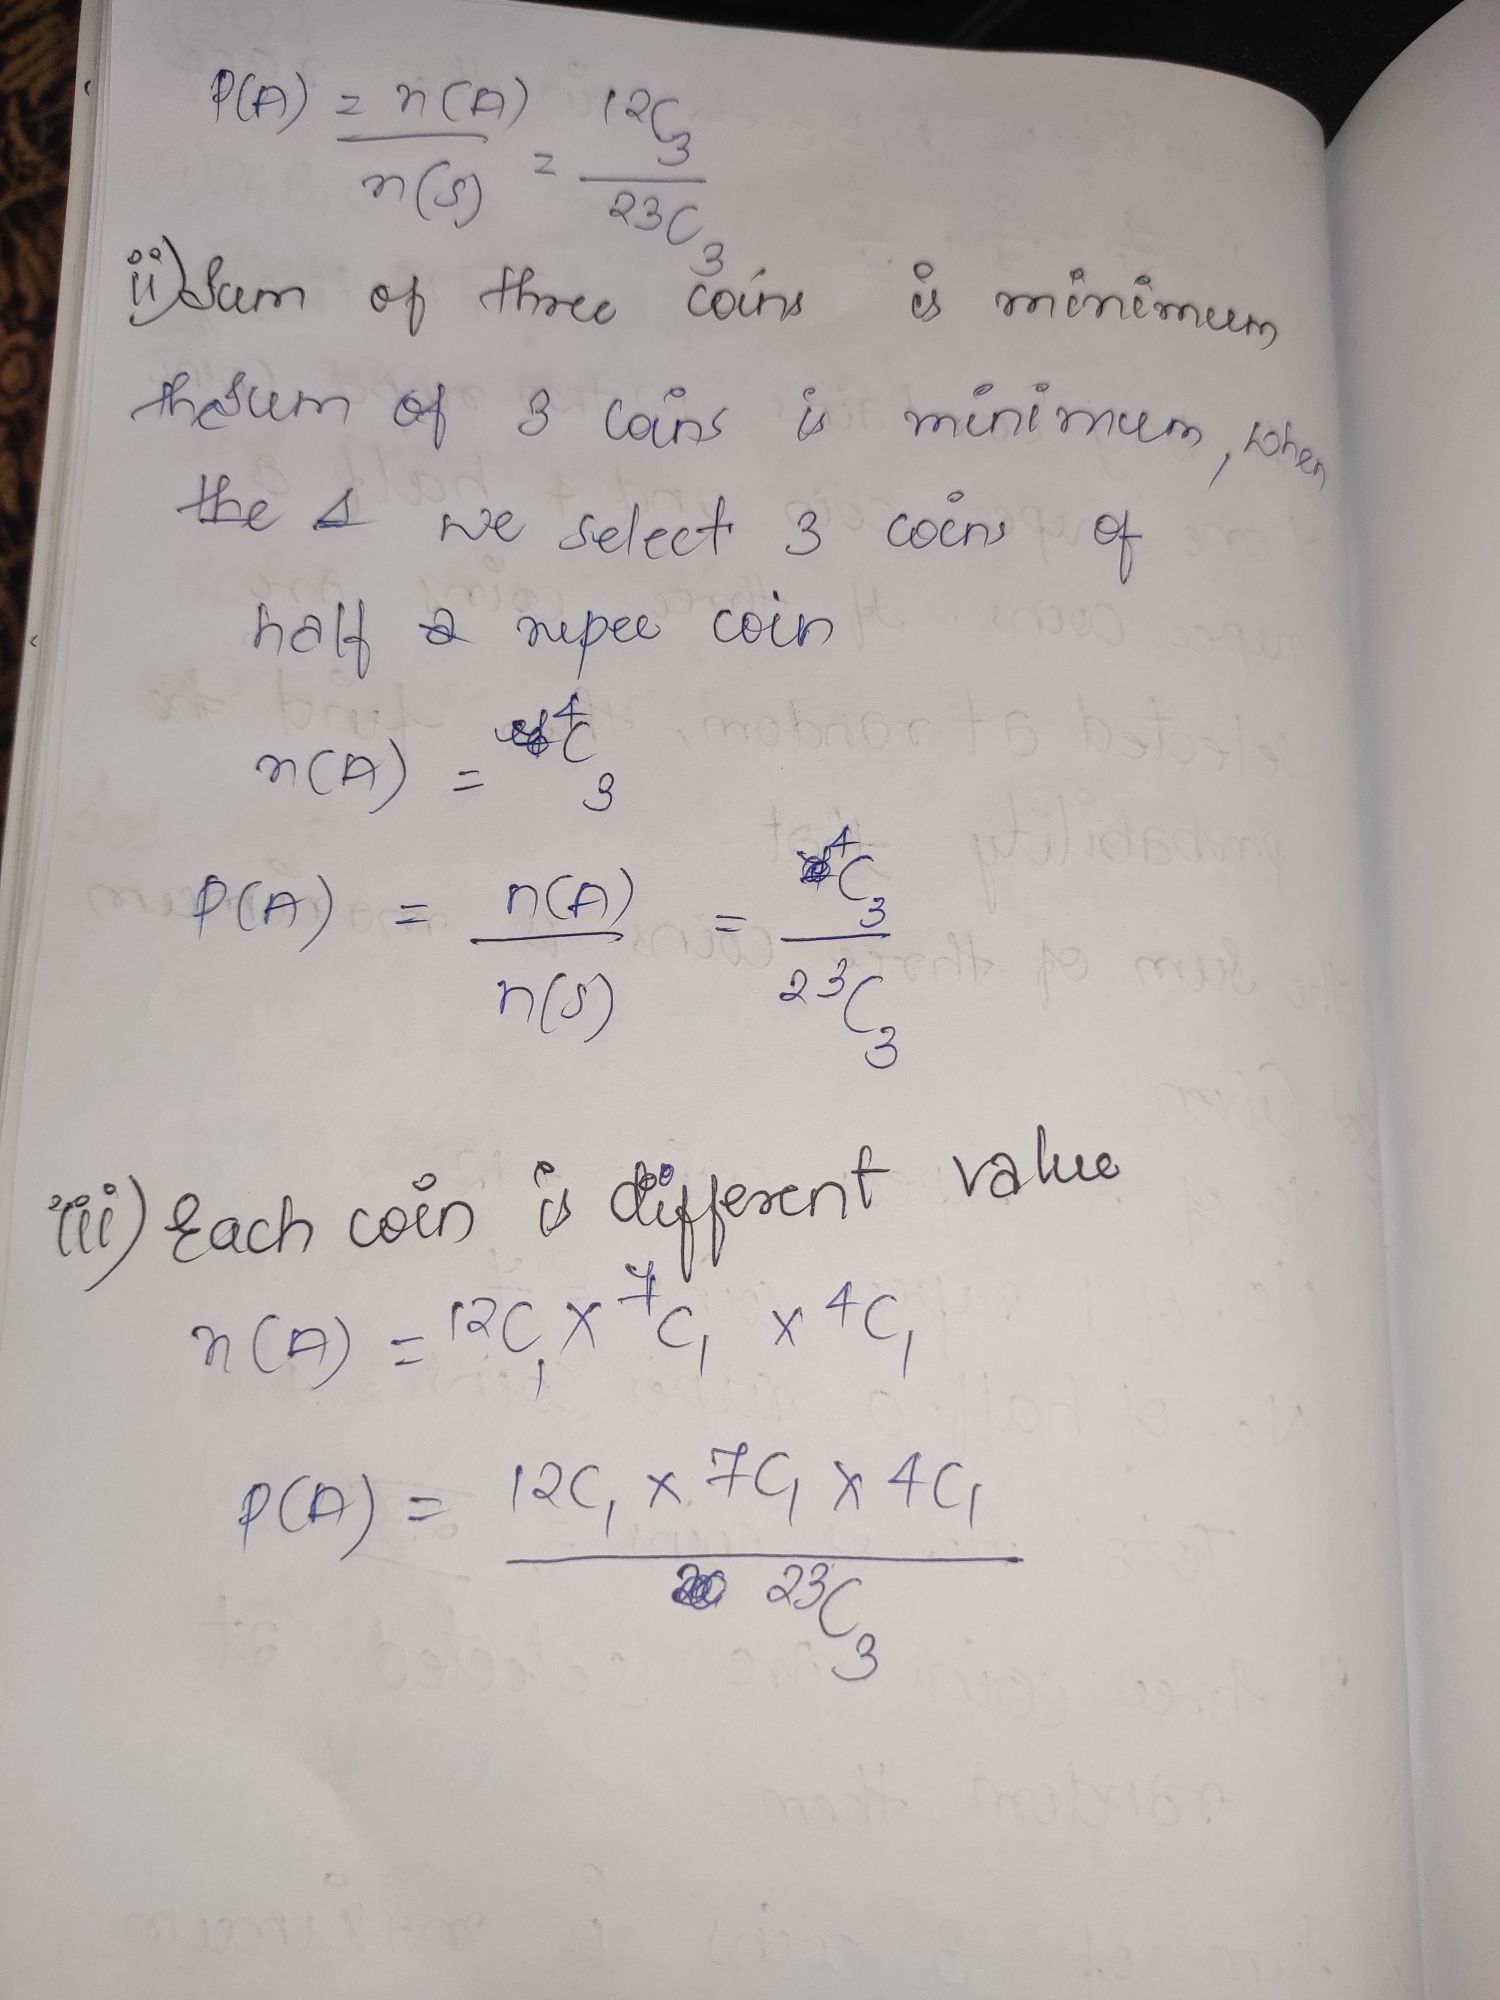 P(A) = n(A) / n(S) = 12C3 / 23C3
ii) Sum of three coins is minimum
the sum of 3 coins is minimum, when
the we select 3 coins of
half a rupee coin
n(A) = 4C3
P(A) = n(A) / n(S) = 4C3 / 23C3
iii) Each coin is different value
n(A) = 12C1 x 7C1 x 4C1
P(A) = 12C1 x 7C1 x 4C1 / 23C3